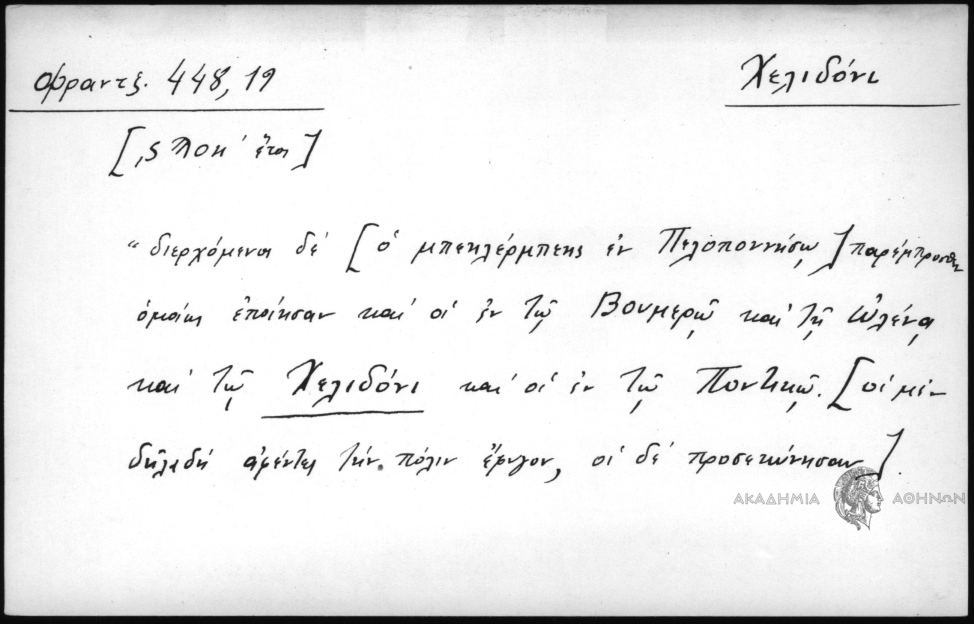 Φραντζ. 448, 19
Χελιδόνι
[,ϛ Ϡοη΄ ἔτει]
"διερχόμενοι δὲ [ὁ μπεκλέρμπεης ἐν Πελοποννήσῳ] παρέμπροσθεν
ὁμοίως ἐποίησαν καὶ οἱ ἐν τῷ Βουμερῷ καὶ τῇ Ὠλένᾳ
καὶ τῷ Χελιδόνι καὶ οἱ ἐν τῷ Ποντικῷ. [οἱ μὲν
δηλαδὴ ἀφέντες τὴν πόλιν ἔφυγον, οἱ δὲ προσεκύνησαν].
ΑΚΑΔΗΜΙΑ ΑΘΗΝΩΝ